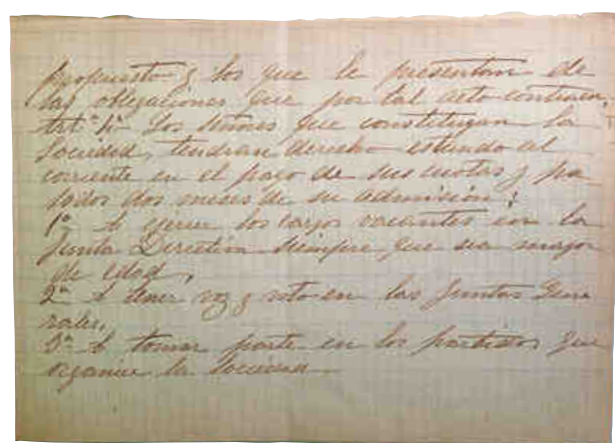 propuesto y los que le presentan de
las obligaciones que por tal acto contraen,
Art.º 4º Los Señores que constituyan la
Sociedad, tendran derecho estando al
corriente en el pago de sus cuotas y pa
sados dos meses de su admisión;
1º A ejercer los cargos vacantes en la
Junta Directiva siempre que sea mayor
de edad,
2º A tener voz y voto en las Juntas Gene
rales,
3º A tomar parte en los partidos que
organice la Sociedad